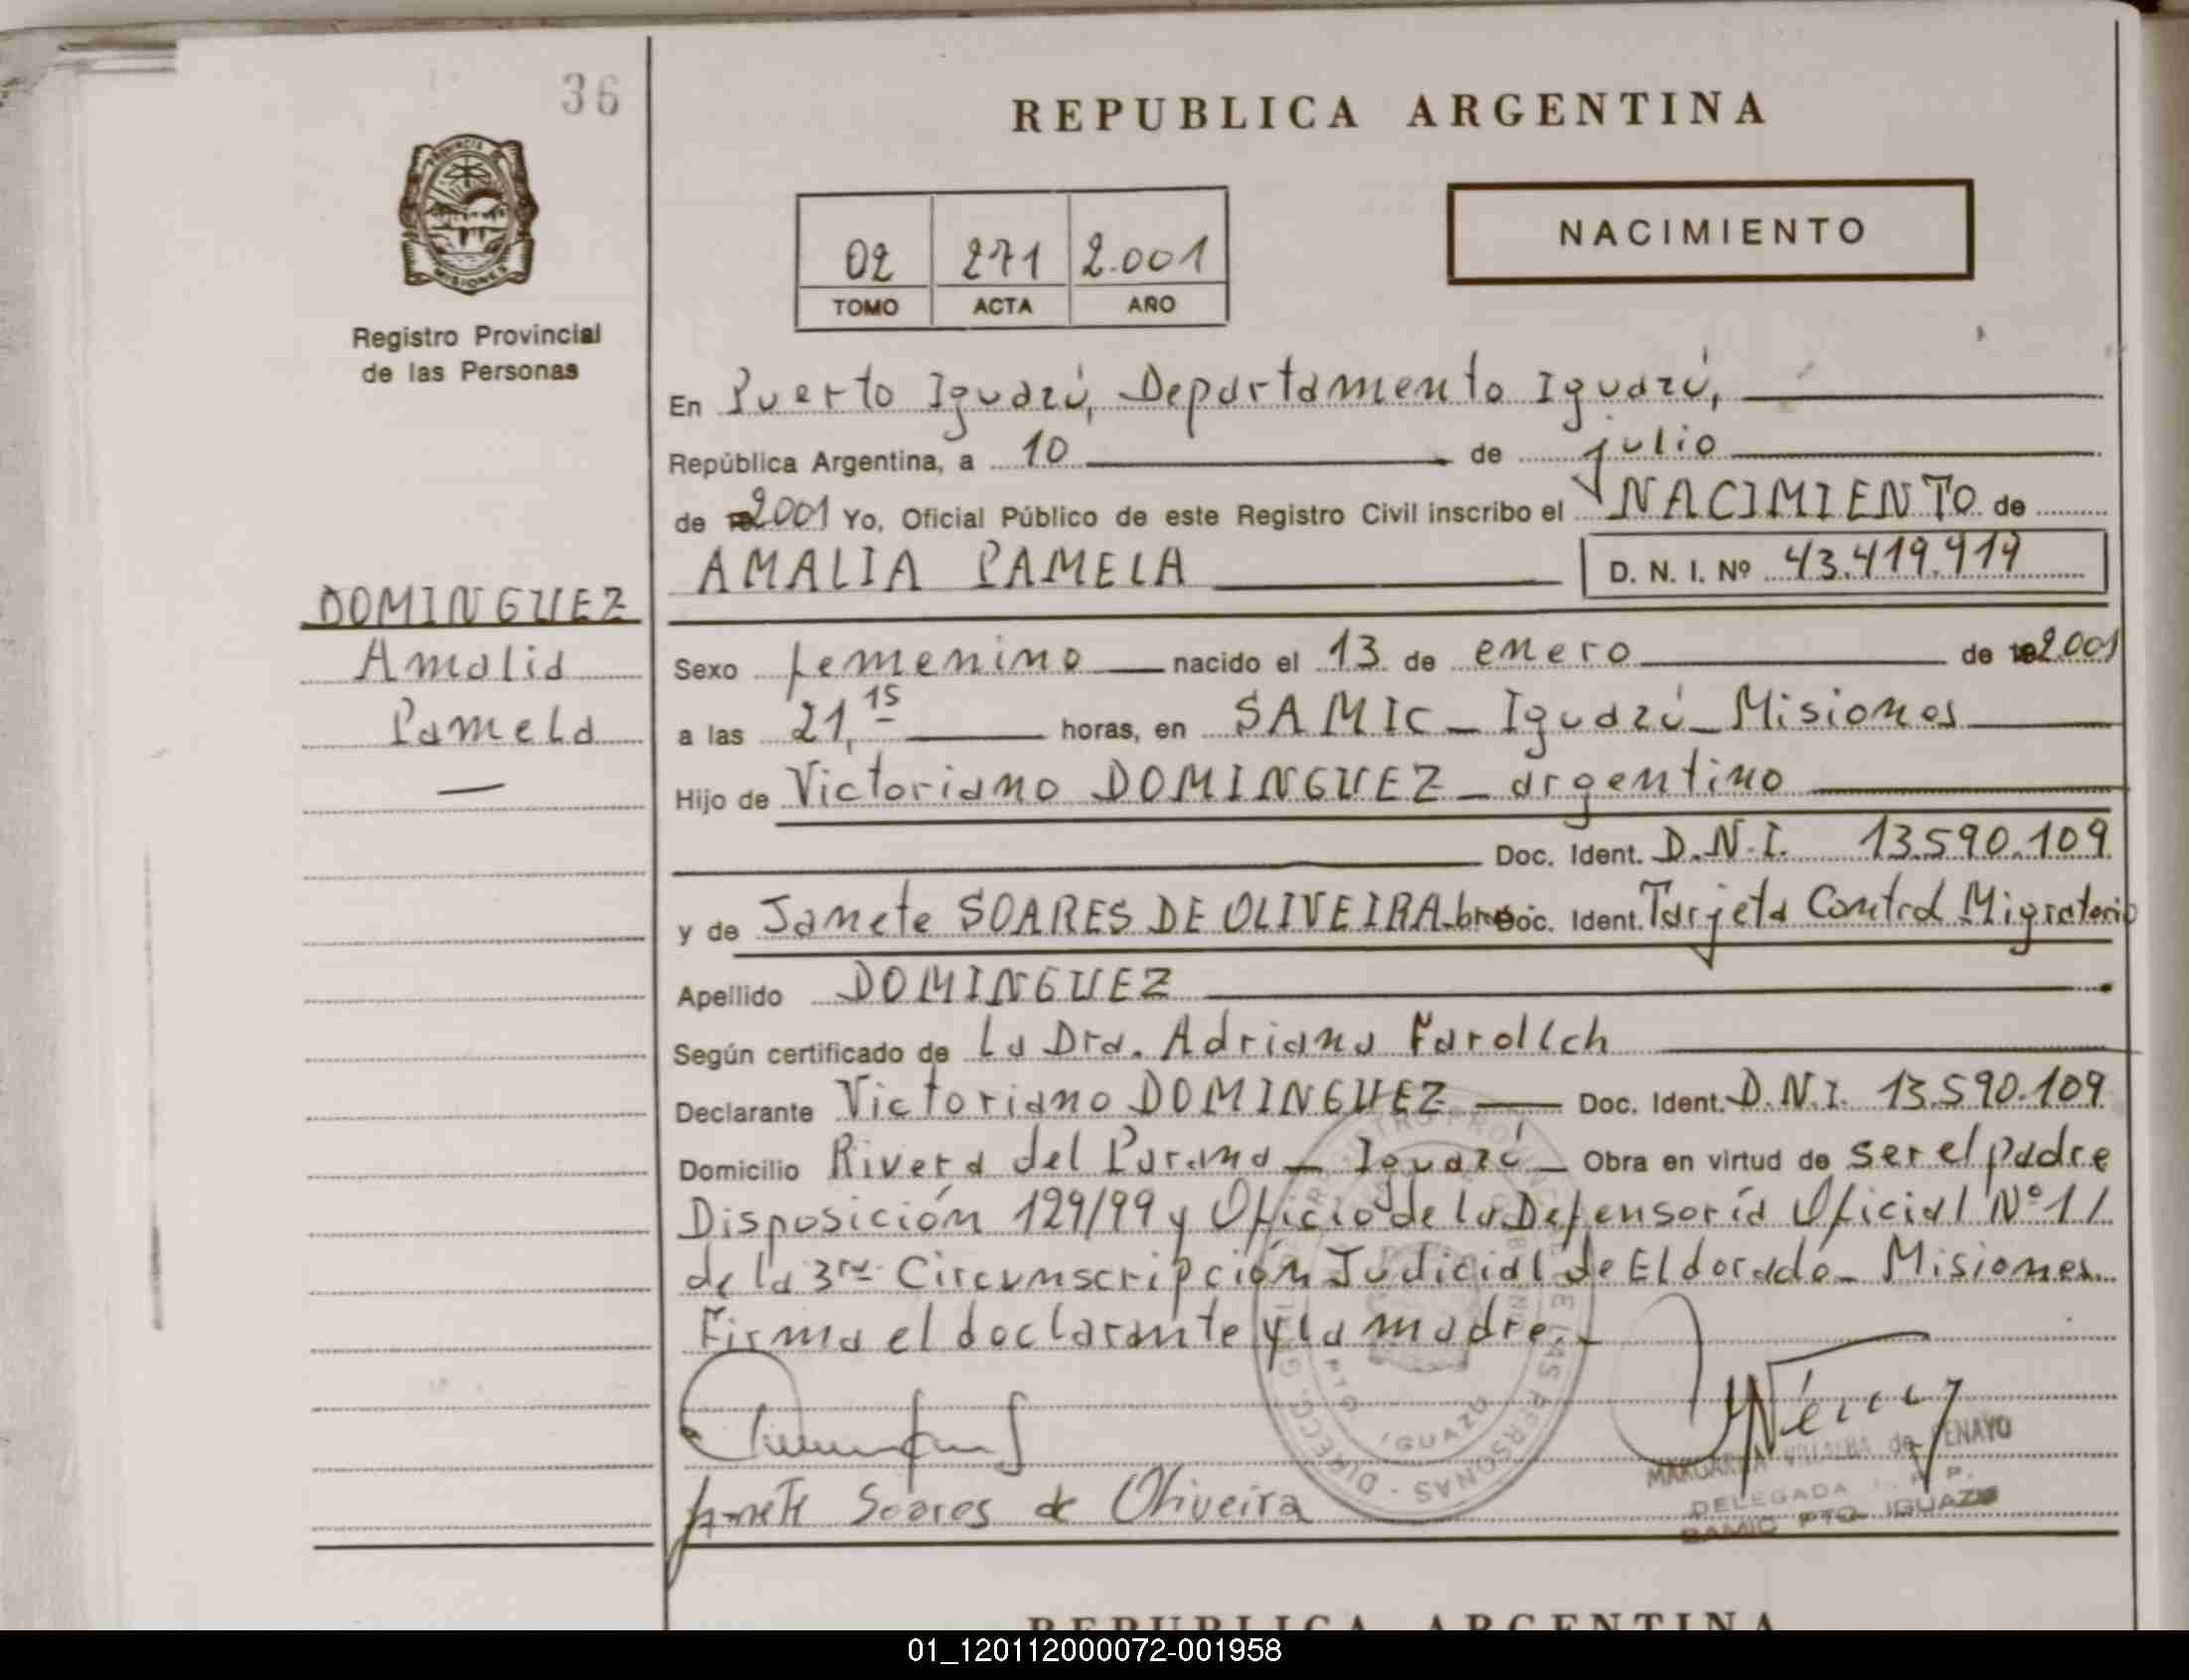 36
REPUBLICA ARGENTINA
NACIMIENTO
02 271 2.001
TOMO ACTA AÑO
Registro Provincial
de las Personas
En Puerto Iguazú, Departamento Iguazú,
República Argentina, a 10 de julio
de 2001 Yo, Oficial Público de este Registro Civil inscribo el NACIMIENTO de
AMALIA PAMELA D. N. I. Nº 43.419.919
DOMINGUEZ
Amalia
Pamela
Sexo femenino nacido el 13 de enero de 2001
a las 21,15 horas, en SAMIC - Iguazú - Misiones
Hijo de Victoriano DOMINGUEZ - argentino
Doc. Ident. D.N.I. 13.590.109
y de Janete SOARES DE OLIVEIRA - bra Doc. Ident. Tarjeta Control Migratorio
Apellido DOMINGUEZ
Según certificado de La Dra. Adriana Farollch
Declarante Victoriano DOMINGUEZ Doc. Ident. D.N.I. 13.590.109
Domicilio Rivera del Parana - Iguazú - Obra en virtud de ser el padre
Disposición 129/99 y Oficio de la Defensoría Oficial Nº 1/
de la 3ra Circunscripción Judicial de Eldorado - Misiones
Firma el declarante y la madre.-
Janete Soares de Oliveira
MARGARITA VILLALBA de
DELEGADA R. P. P.
SAMIC PTO. IGUAZU
DIRECC. GRAL. REGISTRO PROVINCIAL DE LAS PERSONAS
PTO. IGUAZU
REPUBLICA ARGENTINA
01_120112000072-001958